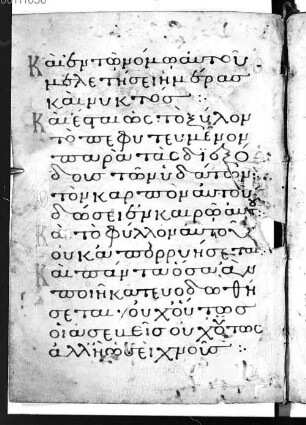 Καὶ ἐν τῷ νόμῳ αὐτοῦ
μελετήσει ἡμέρας
καὶ νυκτός :
Καὶ ἔσται ὡς τὸ ξύλον
τὸ πεφυτευμένον
παρὰ τὰς διεξό
δους τῶν ὑδάτων :
ὃ τὸν καρπὸν αὐτοῦ
δώσει ἐν καιρῷ αὐτοῦ
Καὶ τὸ φύλλον αὐτοῦ
οὐκ ἀπορρυήσεται
Καὶ πάντα ὅσα ἂν
ποιῇ κατευοδωθή
σεται· οὐχ οὕτως
οἱ ἀσεβεῖς οὐχ οὕτως
ἀλλ' ἢ ὡσεὶ χνοῦς :